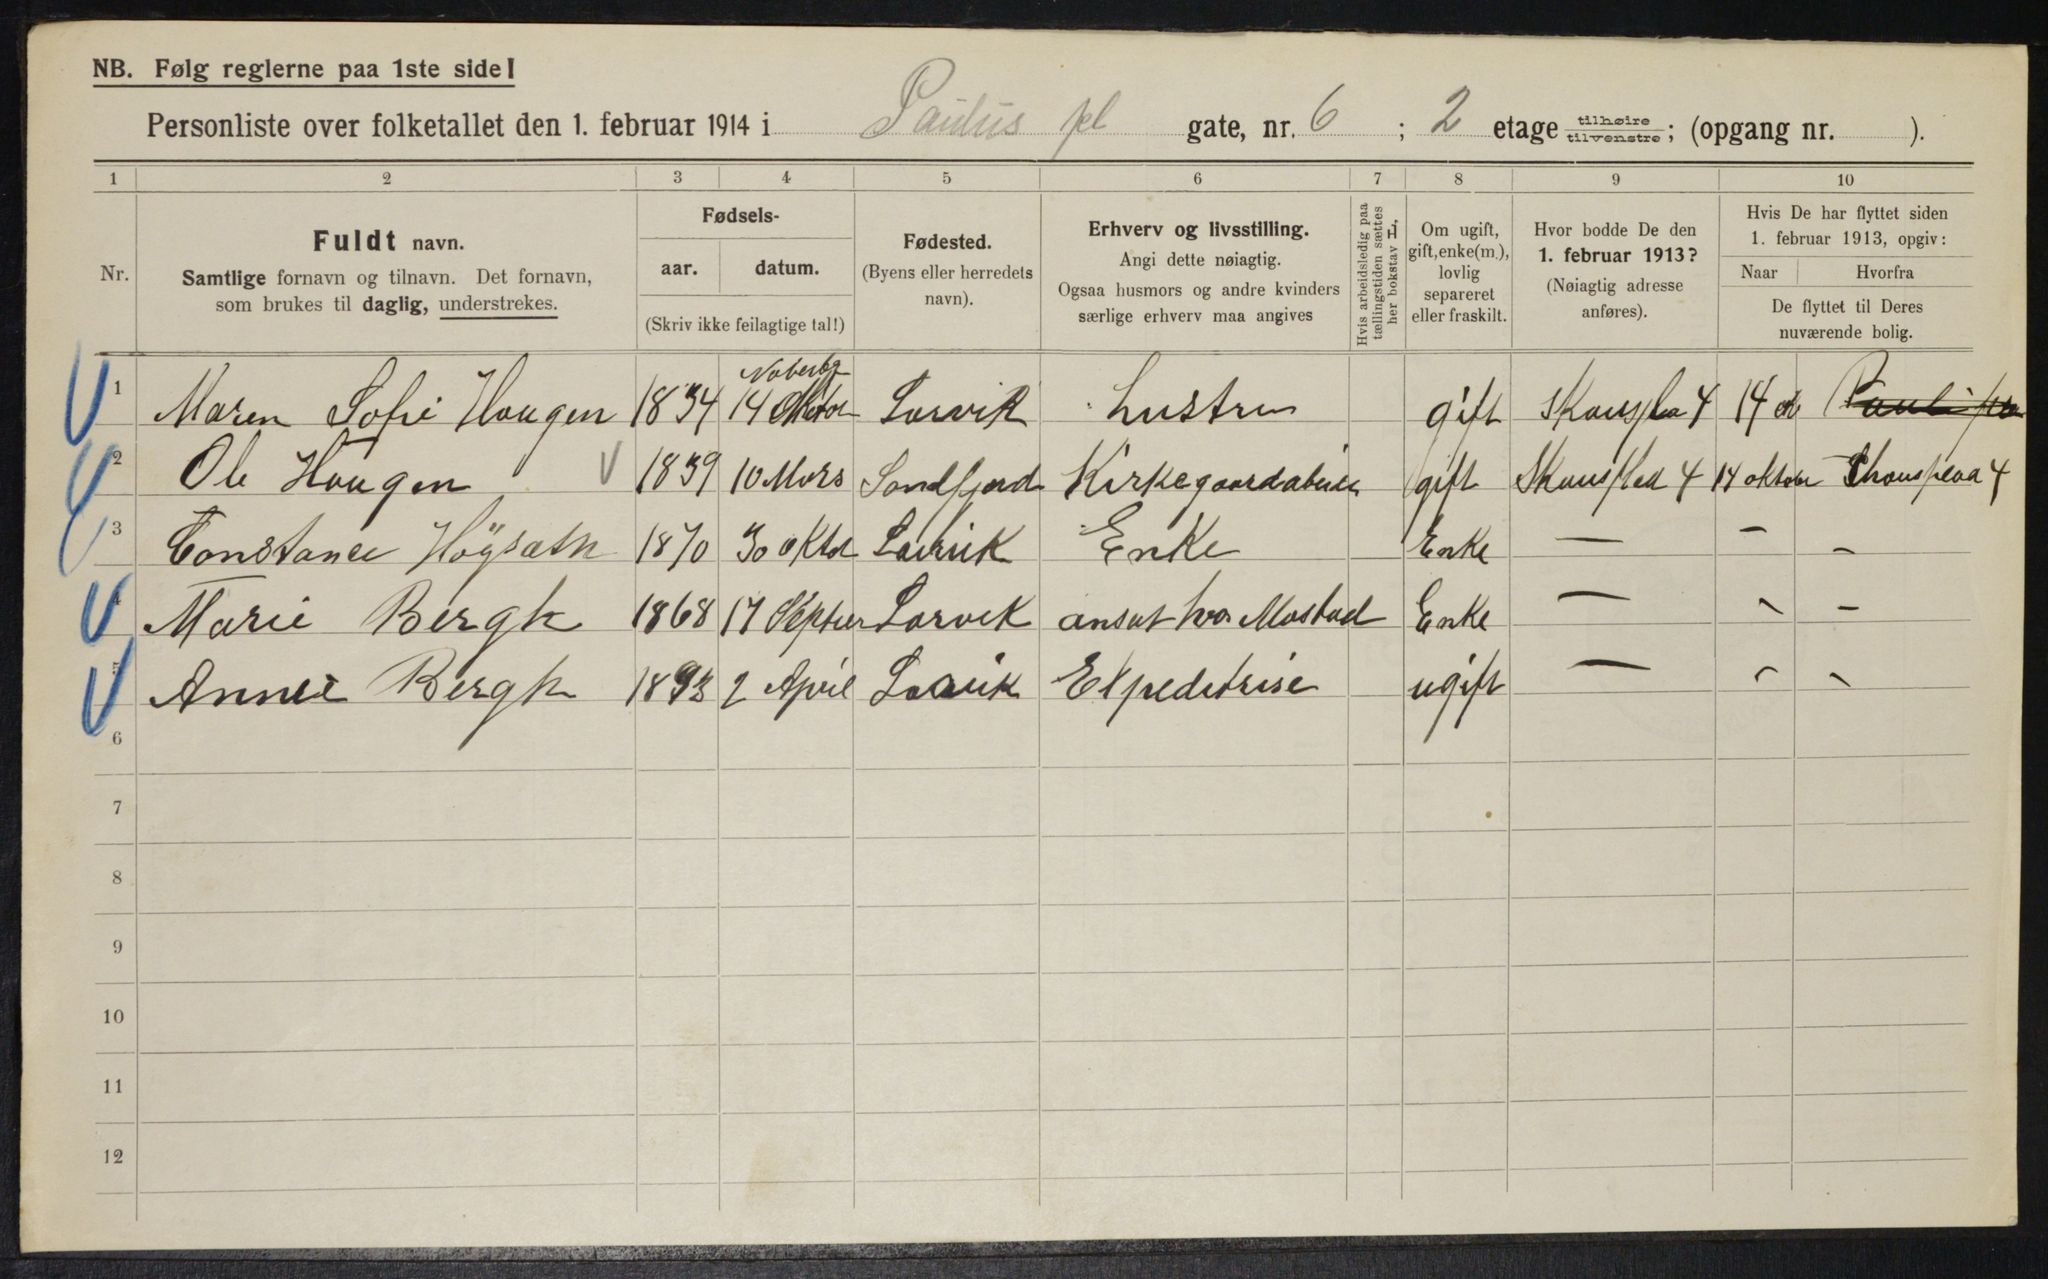 NB. Følg reglerne paa 1ste side!
Personliste over folketallet den 1. februar 1914 i Paulus pl gate, nr. 6 ; 2 etage tilhøire tilvenstre; (opgang nr. ).
1 2 3 4 5 6 7 8 9 10
Nr.
Fuldt navn.
Samtlige fornavn og tilnavn. Det fornavn,
som brukes til daglig, understrekes.
Fødsels-
aar. datum.
(Skriv ikke feilagtige tal!)
Fødested.
(Byens eller herredets
navn).
Erhverv og livsstilling.
Angi dette nøiagtig.
Ogsaa husmors og andre kvinders
særlige erhverv maa angives
Hvis arbeidsledig paa
tællingstiden sættes
her bokstav L,
Om ugift,
gift, enke(m.),
lovlig
separeret
eller fraskilt.
Hvor bodde De den
1. februar 1913?
(Nøiagtig adresse
anføres).
Hvis De har flyttet siden
1. februar 1913, opgiv:
Naar Hvorfra
De flyttet til Deres
nuværende bolig.
1 Maren Sofie Haugen 1834 14 Larvik hustru gift 4 14 ok
2 Ole Haugen 1839 10 Mars Sandfjord gift 4 14 oktober 4
3 Constance 1870 30 oktd Larvik Enke Enke — – –
4 Marie Bergh 1868 17 Larvik ansat hos Mostad Enke — – –
5 Annie Bergh 1893 2 April Larvik Expeditrise ugift — – –
6
7
8
9
10
11
12